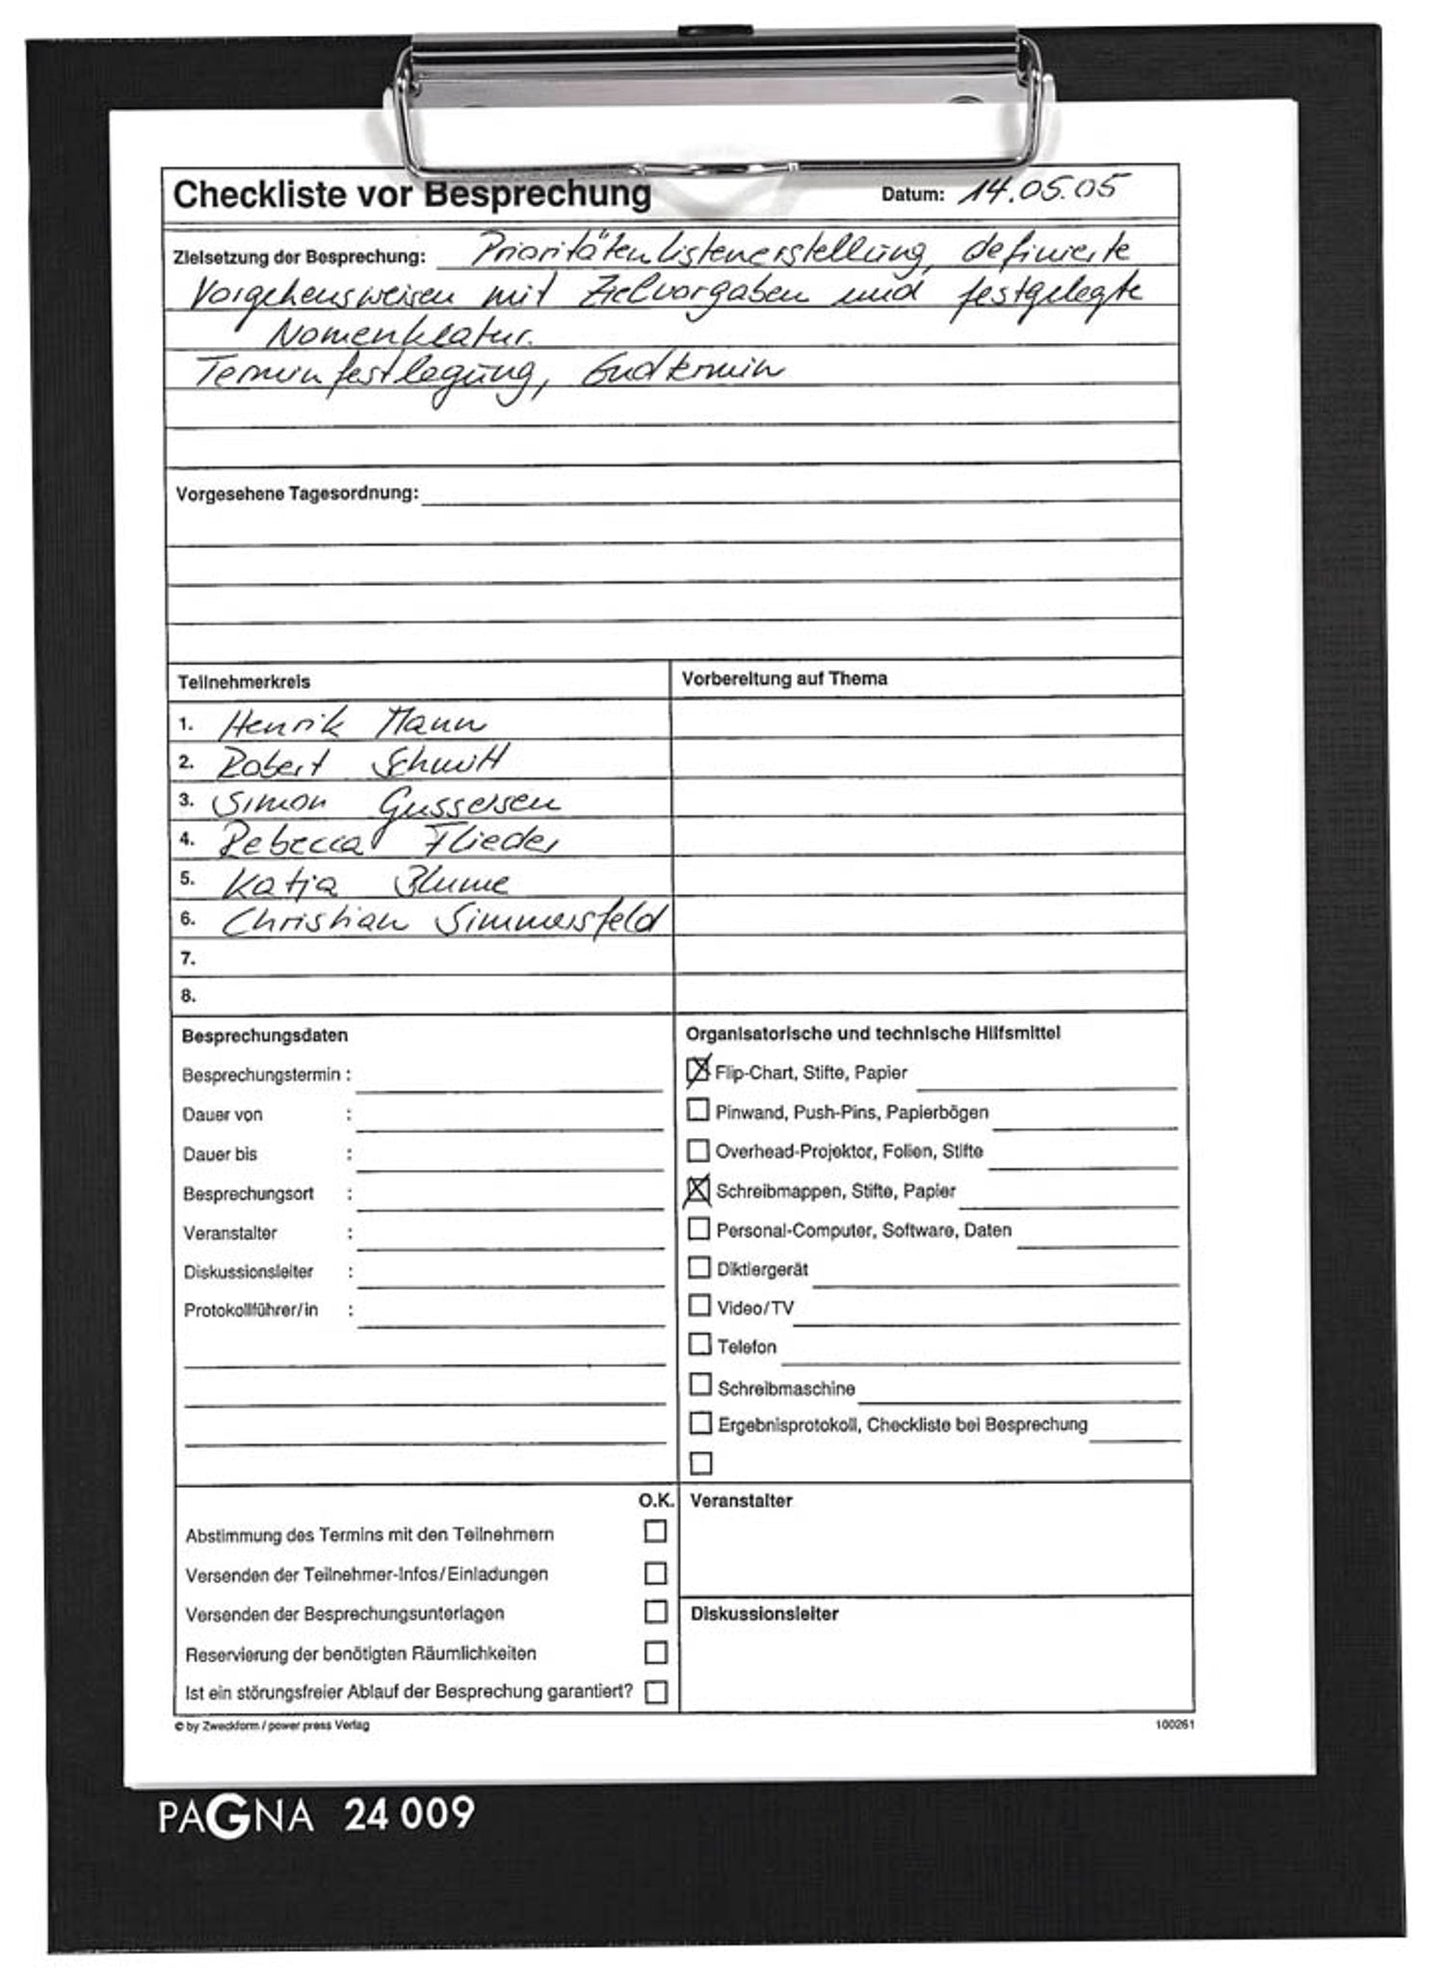 Checkliste vor Besprechung Datum: 14.05.05
Zielsetzung der Besprechung: Prioritätenlistenerstellung, definierte
Vorgehensweisen mit Zielvorgaben und festgelegte
Nomenklatur.
Terminfestlegung, Endtermin
Vorgesehene Tagesordnung:
Teilnehmerkreis Vorbereitung auf Thema
1. Henrik Mann
2. Robert Schmitt
3. Simon Gussersen
4. Rebecca Flieder
5. Katja Blume
6. Christian Simmersfeld
7.
8.
Besprechungsdaten
Besprechungstermin :
Dauer von :
Dauer bis :
Besprechungsort :
Veranstalter :
Diskussionsleiter :
Protokollführer/in :
Organisatorische und technische Hilfsmittel
Flip-Chart, Stifte, Papier
Pinwand, Push-Pins, Papierbögen
Overhead-Projektor, Folien, Stifte
Schreibmappen, Stifte, Papier
Personal-Computer, Software, Daten
Diktiergerät
Video/TV
Telefon
Schreibmaschine
Ergebnisprotokoll, Checkliste bei Besprechung
O.K.
Abstimmung des Termins mit den Teilnehmern
Versenden der Teilnehmer-Infos/Einladungen
Versenden der Besprechungsunterlagen
Reservierung der benötigten Räumlichkeiten
Ist ein störungsfreier Ablauf der Besprechung garantiert?
Veranstalter
Diskussionsleiter
© by Zweckform / power press Verlag 100261
PAGNA 24 009